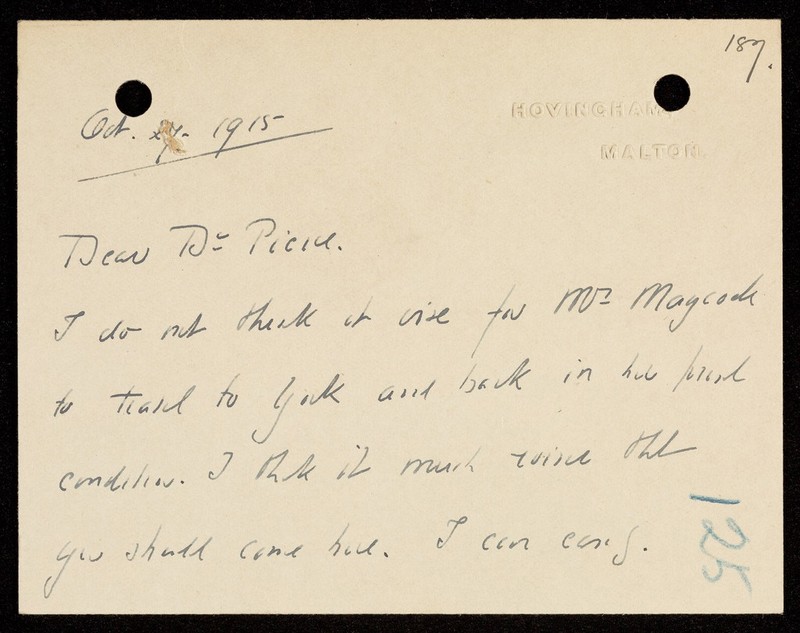 187.
HOVINGHAM,
MALTON.
Oct. 27. 1915
Dear Dr Pierce.
I do not think it wise for Mrs Maycock
to travel to York and back in her present
condition. I think it much wiser that
you should come here. I can easily.
125